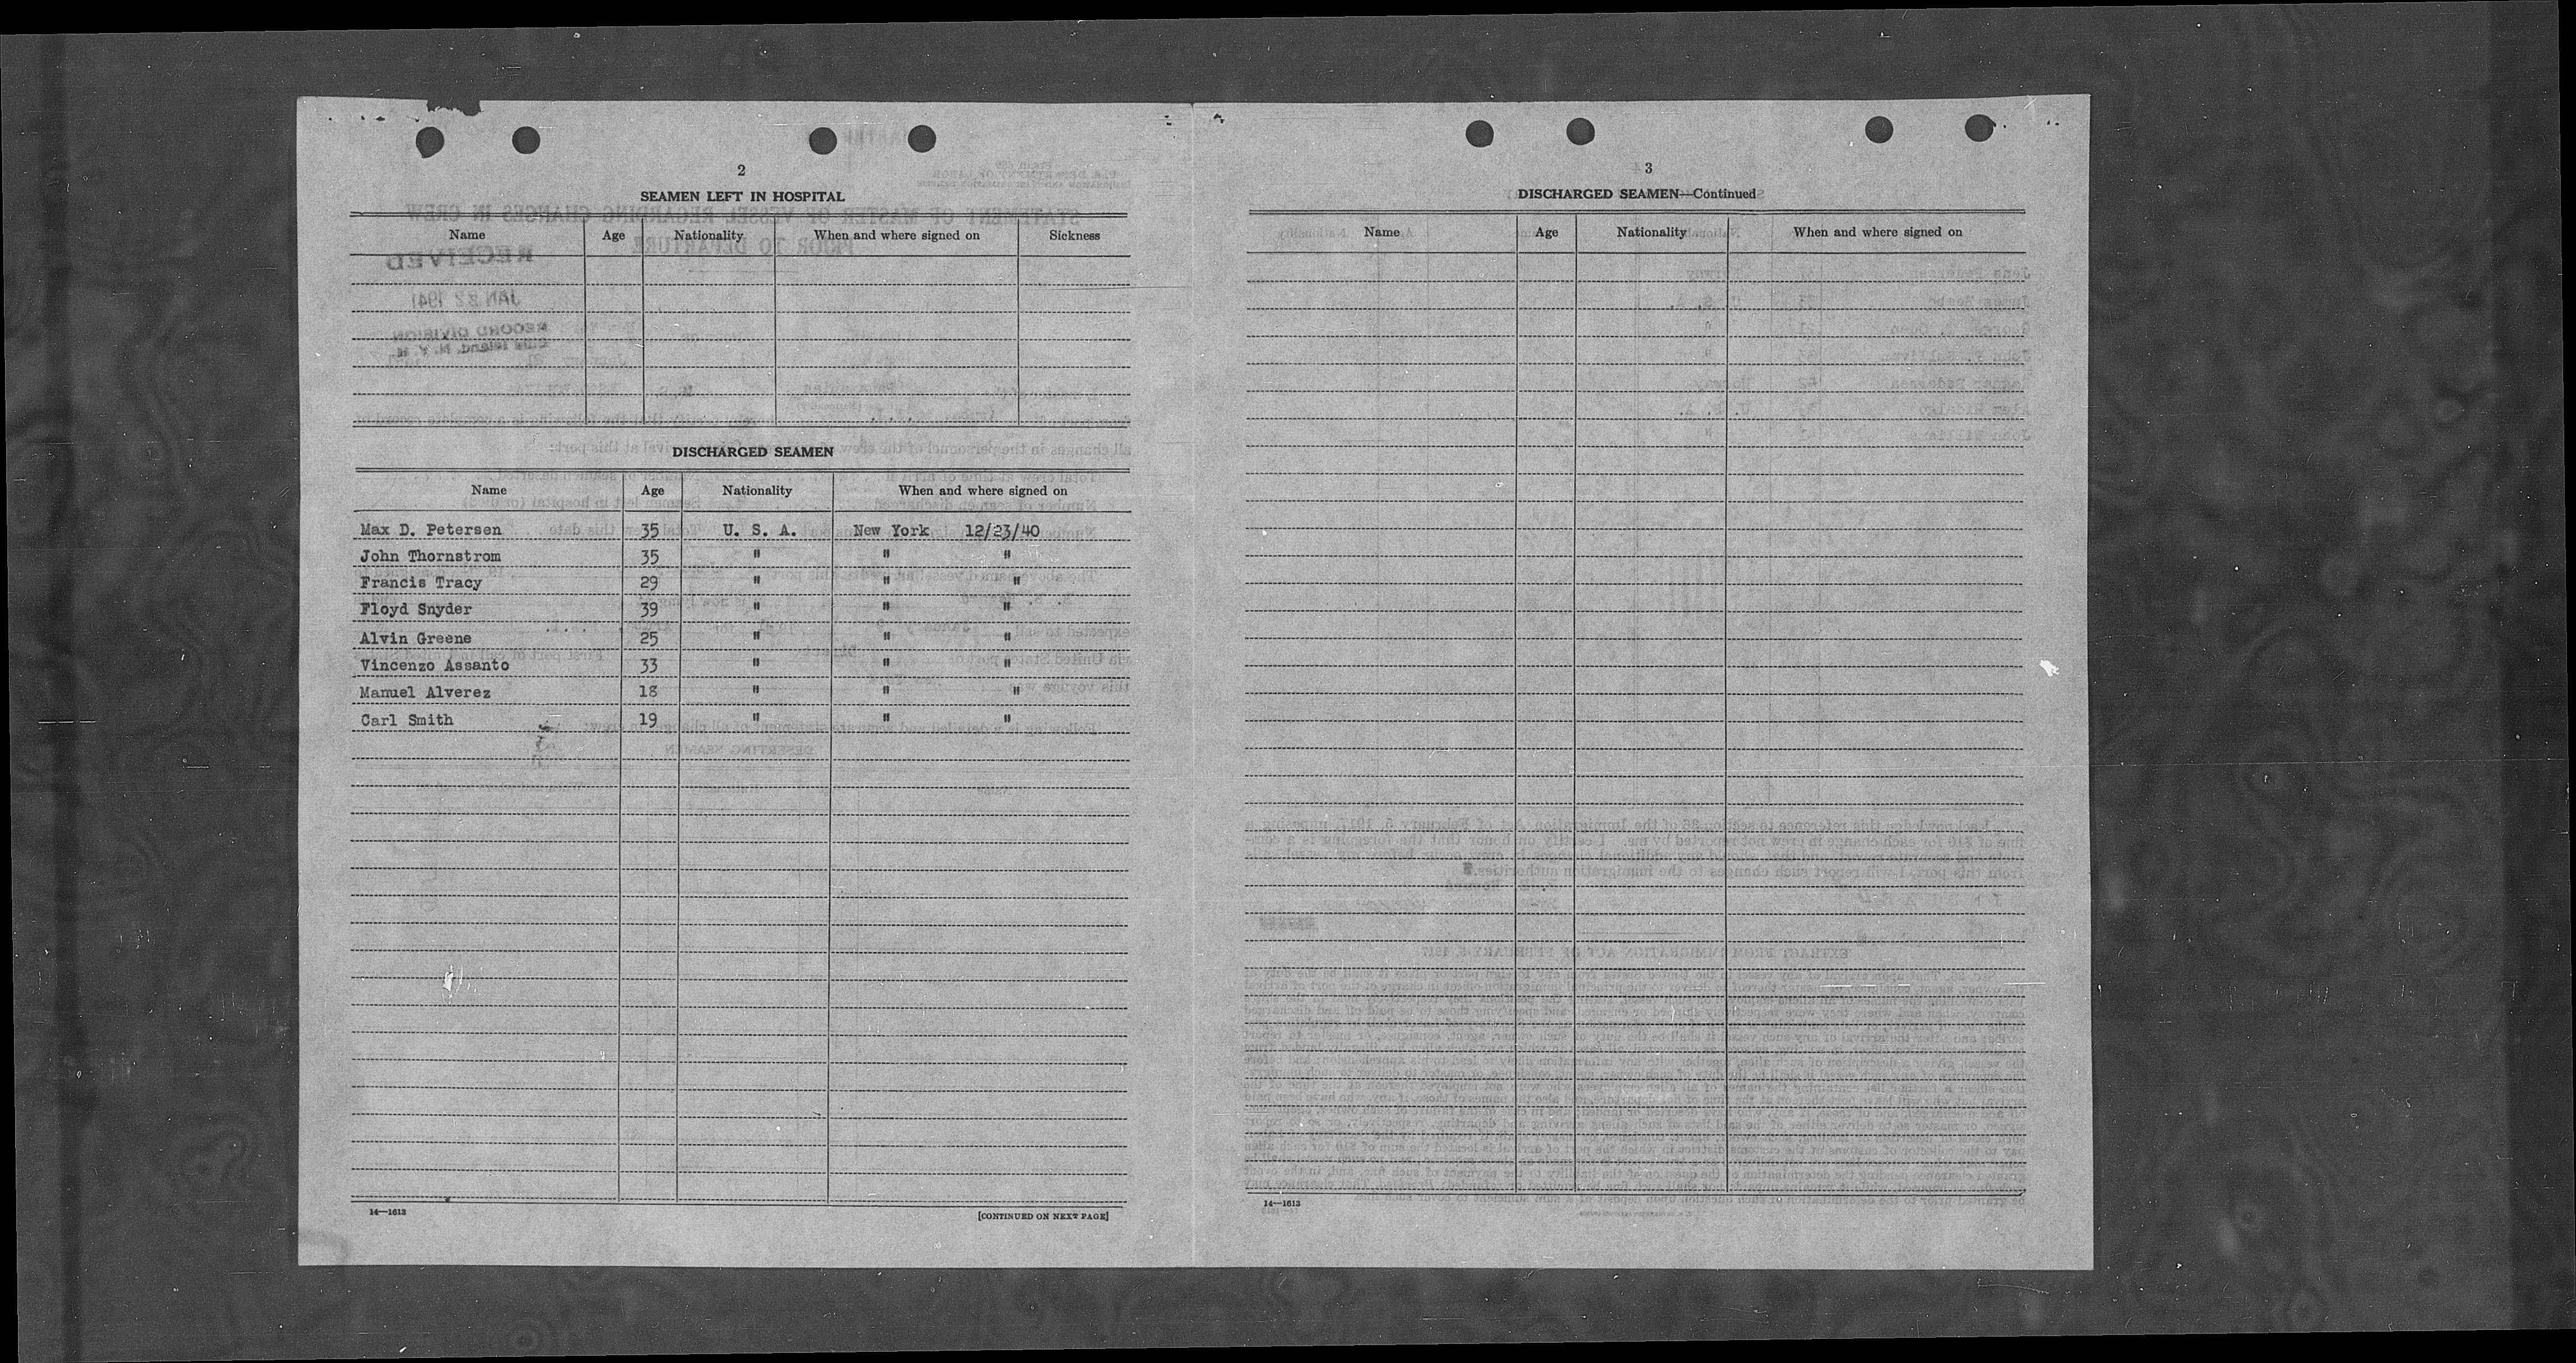 2
SEAMEN LEFT IN HOSPITAL
Name Age Nationality When and where signed on Sickness
DISCHARGED SEAMEN
Name Age Nationality When and where signed on
Max D. Petersen 35 U. S. A. New York 12/23/40
John Thornstrom 35 " " "
Francis Tracy 29 " " "
Floyd Snyder 39 " " "
Alvin Greene 25 " " "
Vincenzo Assanto 33 " " "
Manuel Alverez 18 " " "
Carl Smith 19 " " "
14—1613 [CONTINUED ON NEXT PAGE]
3
DISCHARGED SEAMEN—Continued
Name Age Nationality When and where signed on
14—1613